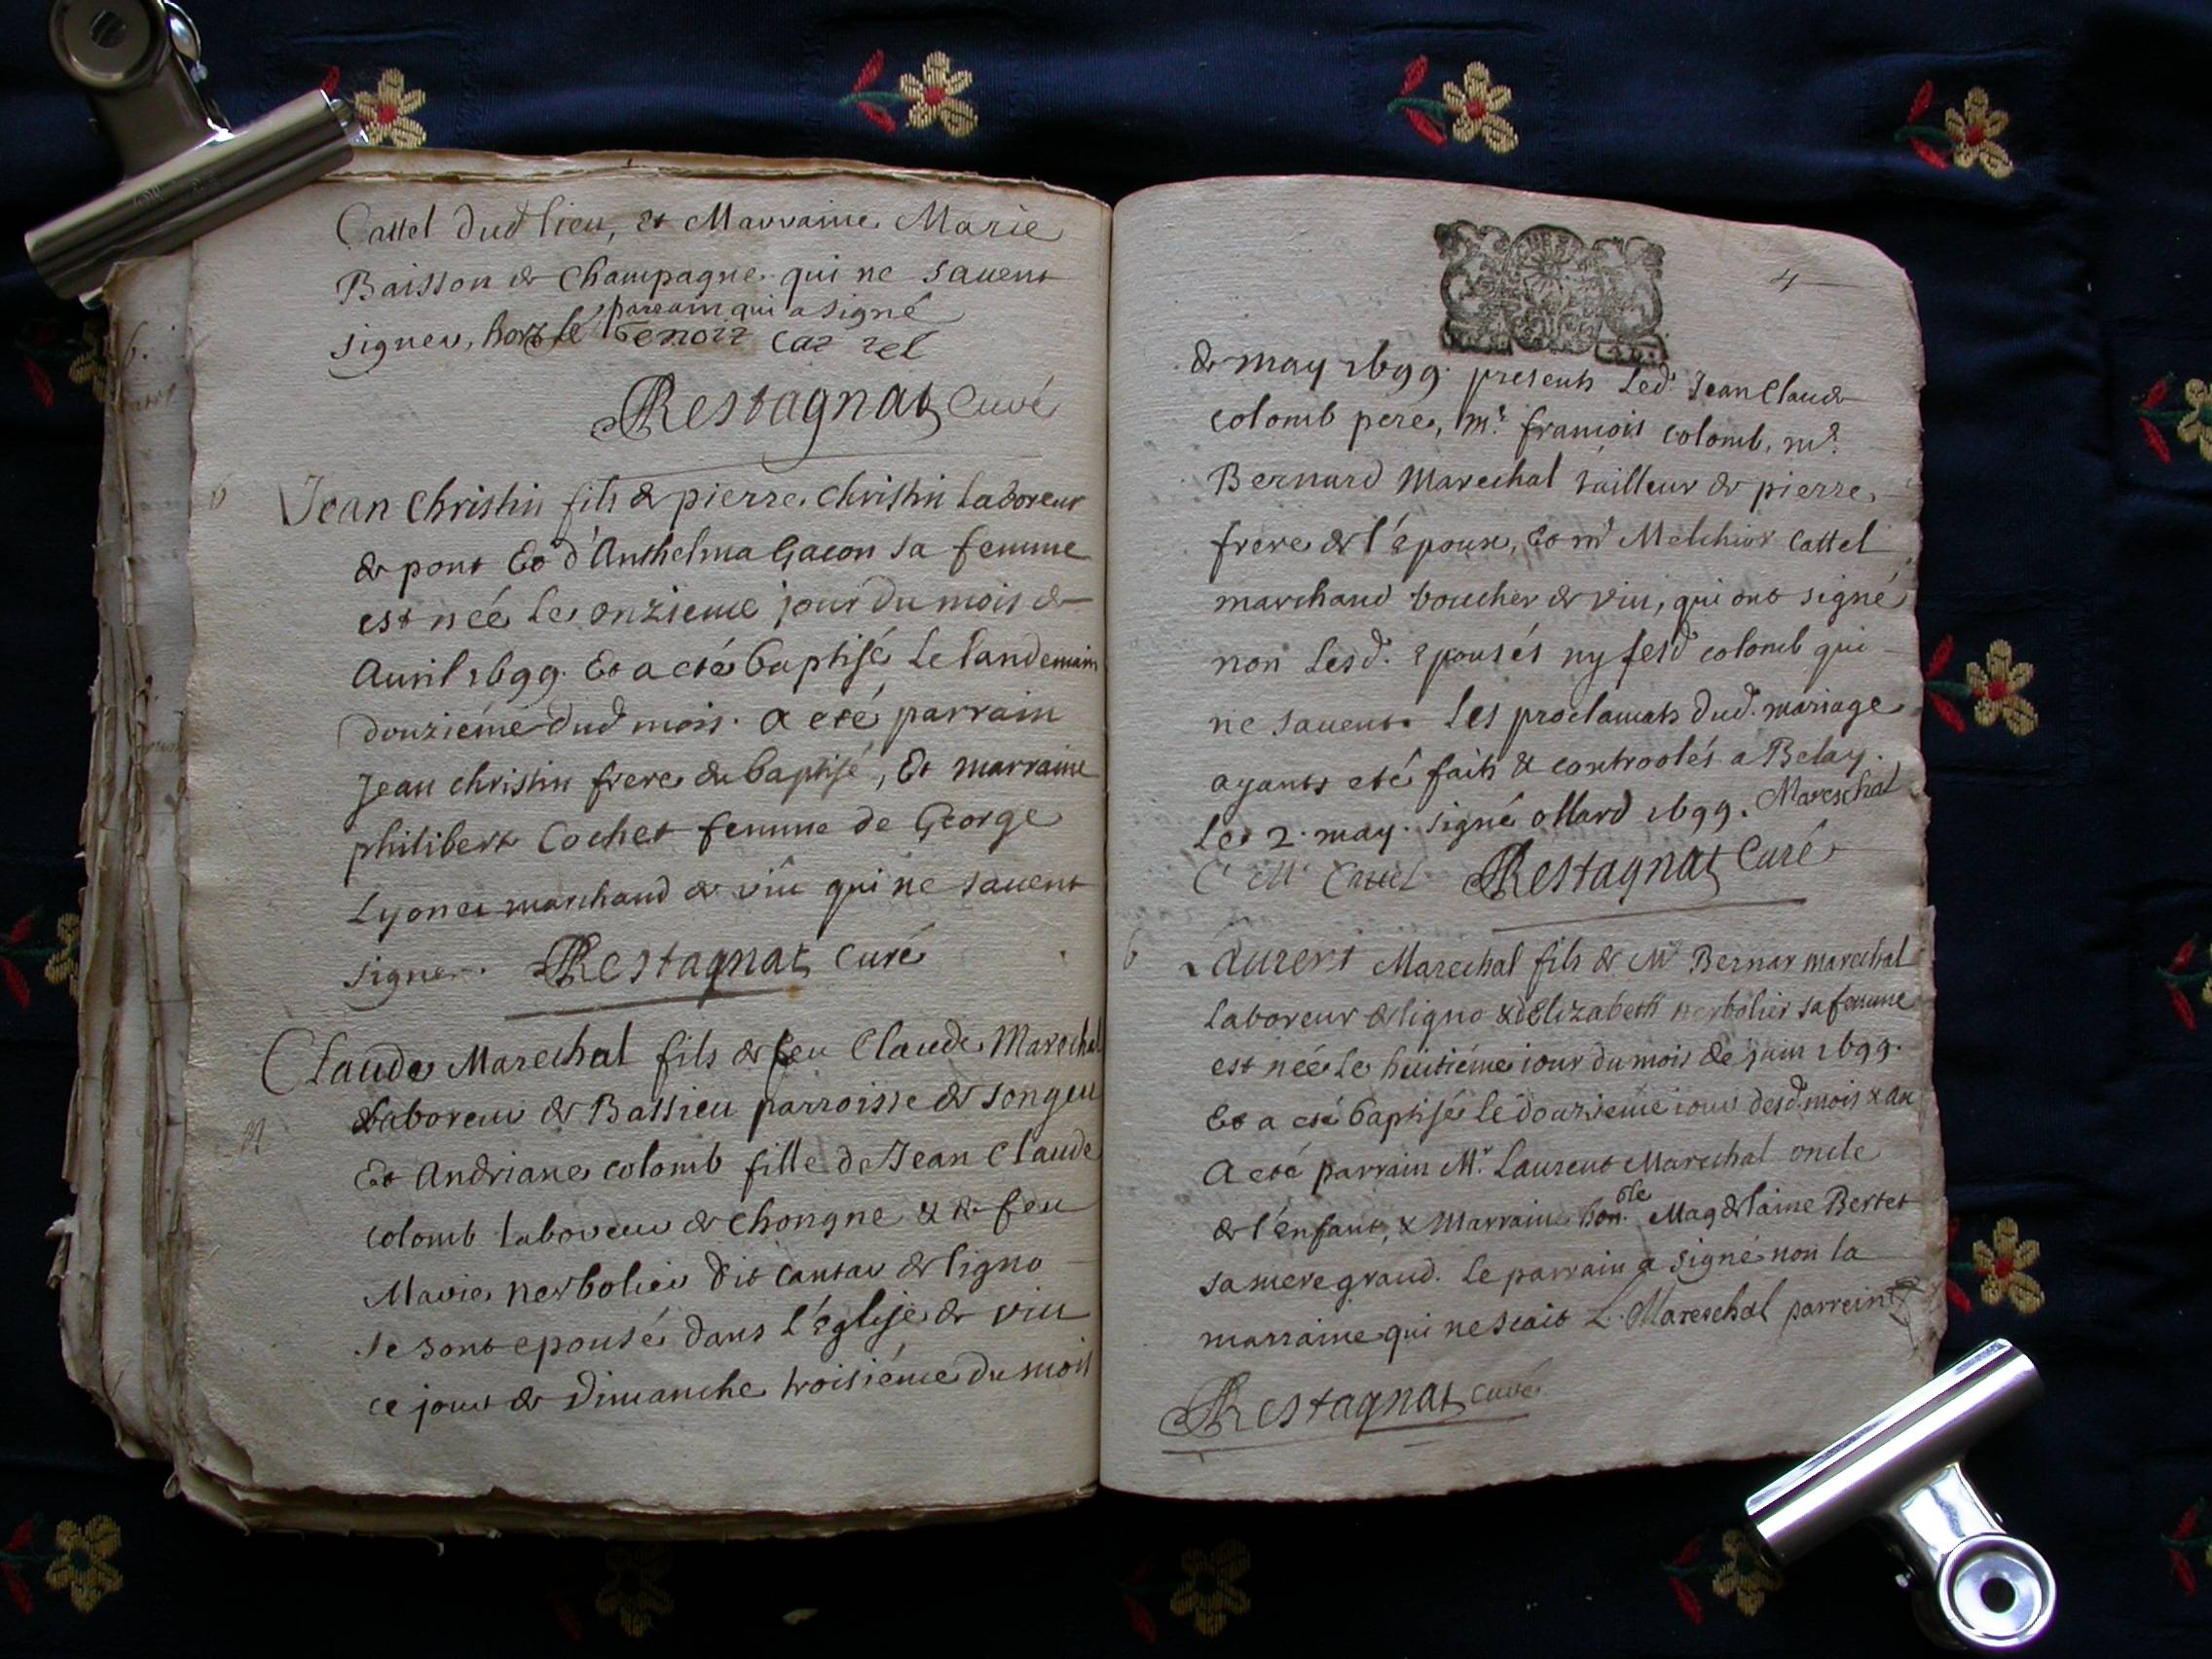 Cattel dud lieu, et Marraine Marie
Baisson de Champagne qui ne sauent
parrain qui a signé
signer, horz le benoit cattel
Restagnat Curé
Jean christin fils de pierre christin Laboreur
de pont Et d'Anthelma Gacon sa femme
est née Le onzieme jour du mois de
Auril 1699. Et a eté baptisé Le landemain
douziéme dud mois. a eté parrain
Jean christin frere du baptisé, Et marraine
philibert Cochet femme de George
Lyonet marchand de viu qui ne sauent
signer. Restagnat curé
Claude Marechal fils de feu Claude Marechal
Laboreur de Bassieu parroisse de songeu
M
Et Andriane colomb fille de Jean Claude
colomb laboreur de chongne & de feu
Marie nerbolier dit cantar de ligno
se sont epousés dans l'église de viu
ce jour de Dimanche troisiéme du mois
4
de may 1699. presents Led. Jean Claude
colomb pere, mr. francois colomb, mr.
Bernard Marechal tailleur de pierre,
frere de l'epoux, Et mr Melchior Cattel
marchand boucher de viu, qui ont signé
non Lesd. epousés ny lesd colomb qui
ne sauent. Les proclamats dud. mariage
ayants eté faits & controolés a Belay.
Le 2. may. signé ollard 1699. Mareschal
M Cattel Restagnat Curé
b Laurent Marechal fils de Mr Bernar marechal
Laboreur de ligno & d'Elizabeth nerbolier sa femme
est née Le huitiéme iour du mois de juin 1699.
Et a eté baptisé le douzieme iour desd. mois & an
A eté parrain Mr. Laurent Marechal oncle
de l'enfant, & Marraine hon.ble Magdelaine Bertet
sa mere grand. Le parrain a signé non la
marraine qui ne scait L. Mareschal parrein
Restagnat curé